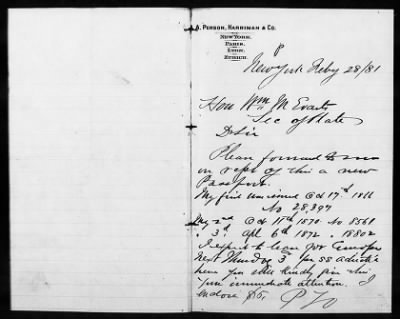 A. PERSON, HARRIMAN & CO.
NEW YORK.
PARIS.
LYON.
ZURICH.
8
New York Feby 28/81
Hon Wm M Evarts
Sec of State
D Sir
Please forward to me
on rect of this a new
Passport.
My first was issued Oct 17th 18
No 28,397
My 2nd Oct 11th 1870 No 8561
" 3d Apl 6th 1872 " 18802
I expect to leave for Europe
next 3d per SS
hence you will kindly give this
your immediate attention. I
enclose $5,